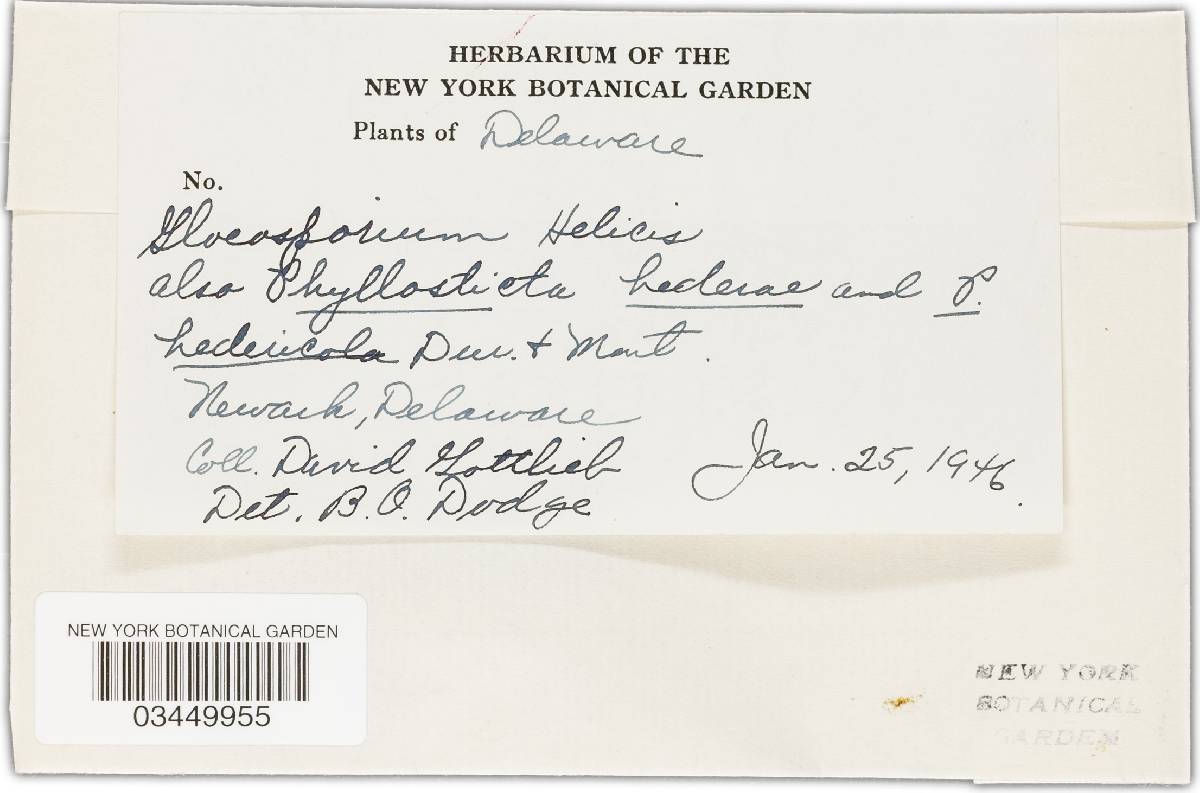 HERBARIUM OF THE
NEW YORK BOTANICAL GARDEN
Plants of Delaware
No.
Gloeosporium Helicis
also Phyllosticta hederae and P.
hedericola Dur. + Mont.
Newark, Delaware
Coll. David Gottlieb Jan. 25, 1946.
Det. B.O. Dodge
NEW YORK BOTANICAL GARDEN
03449955
NEW YORK
BOTANICAL
GARDEN